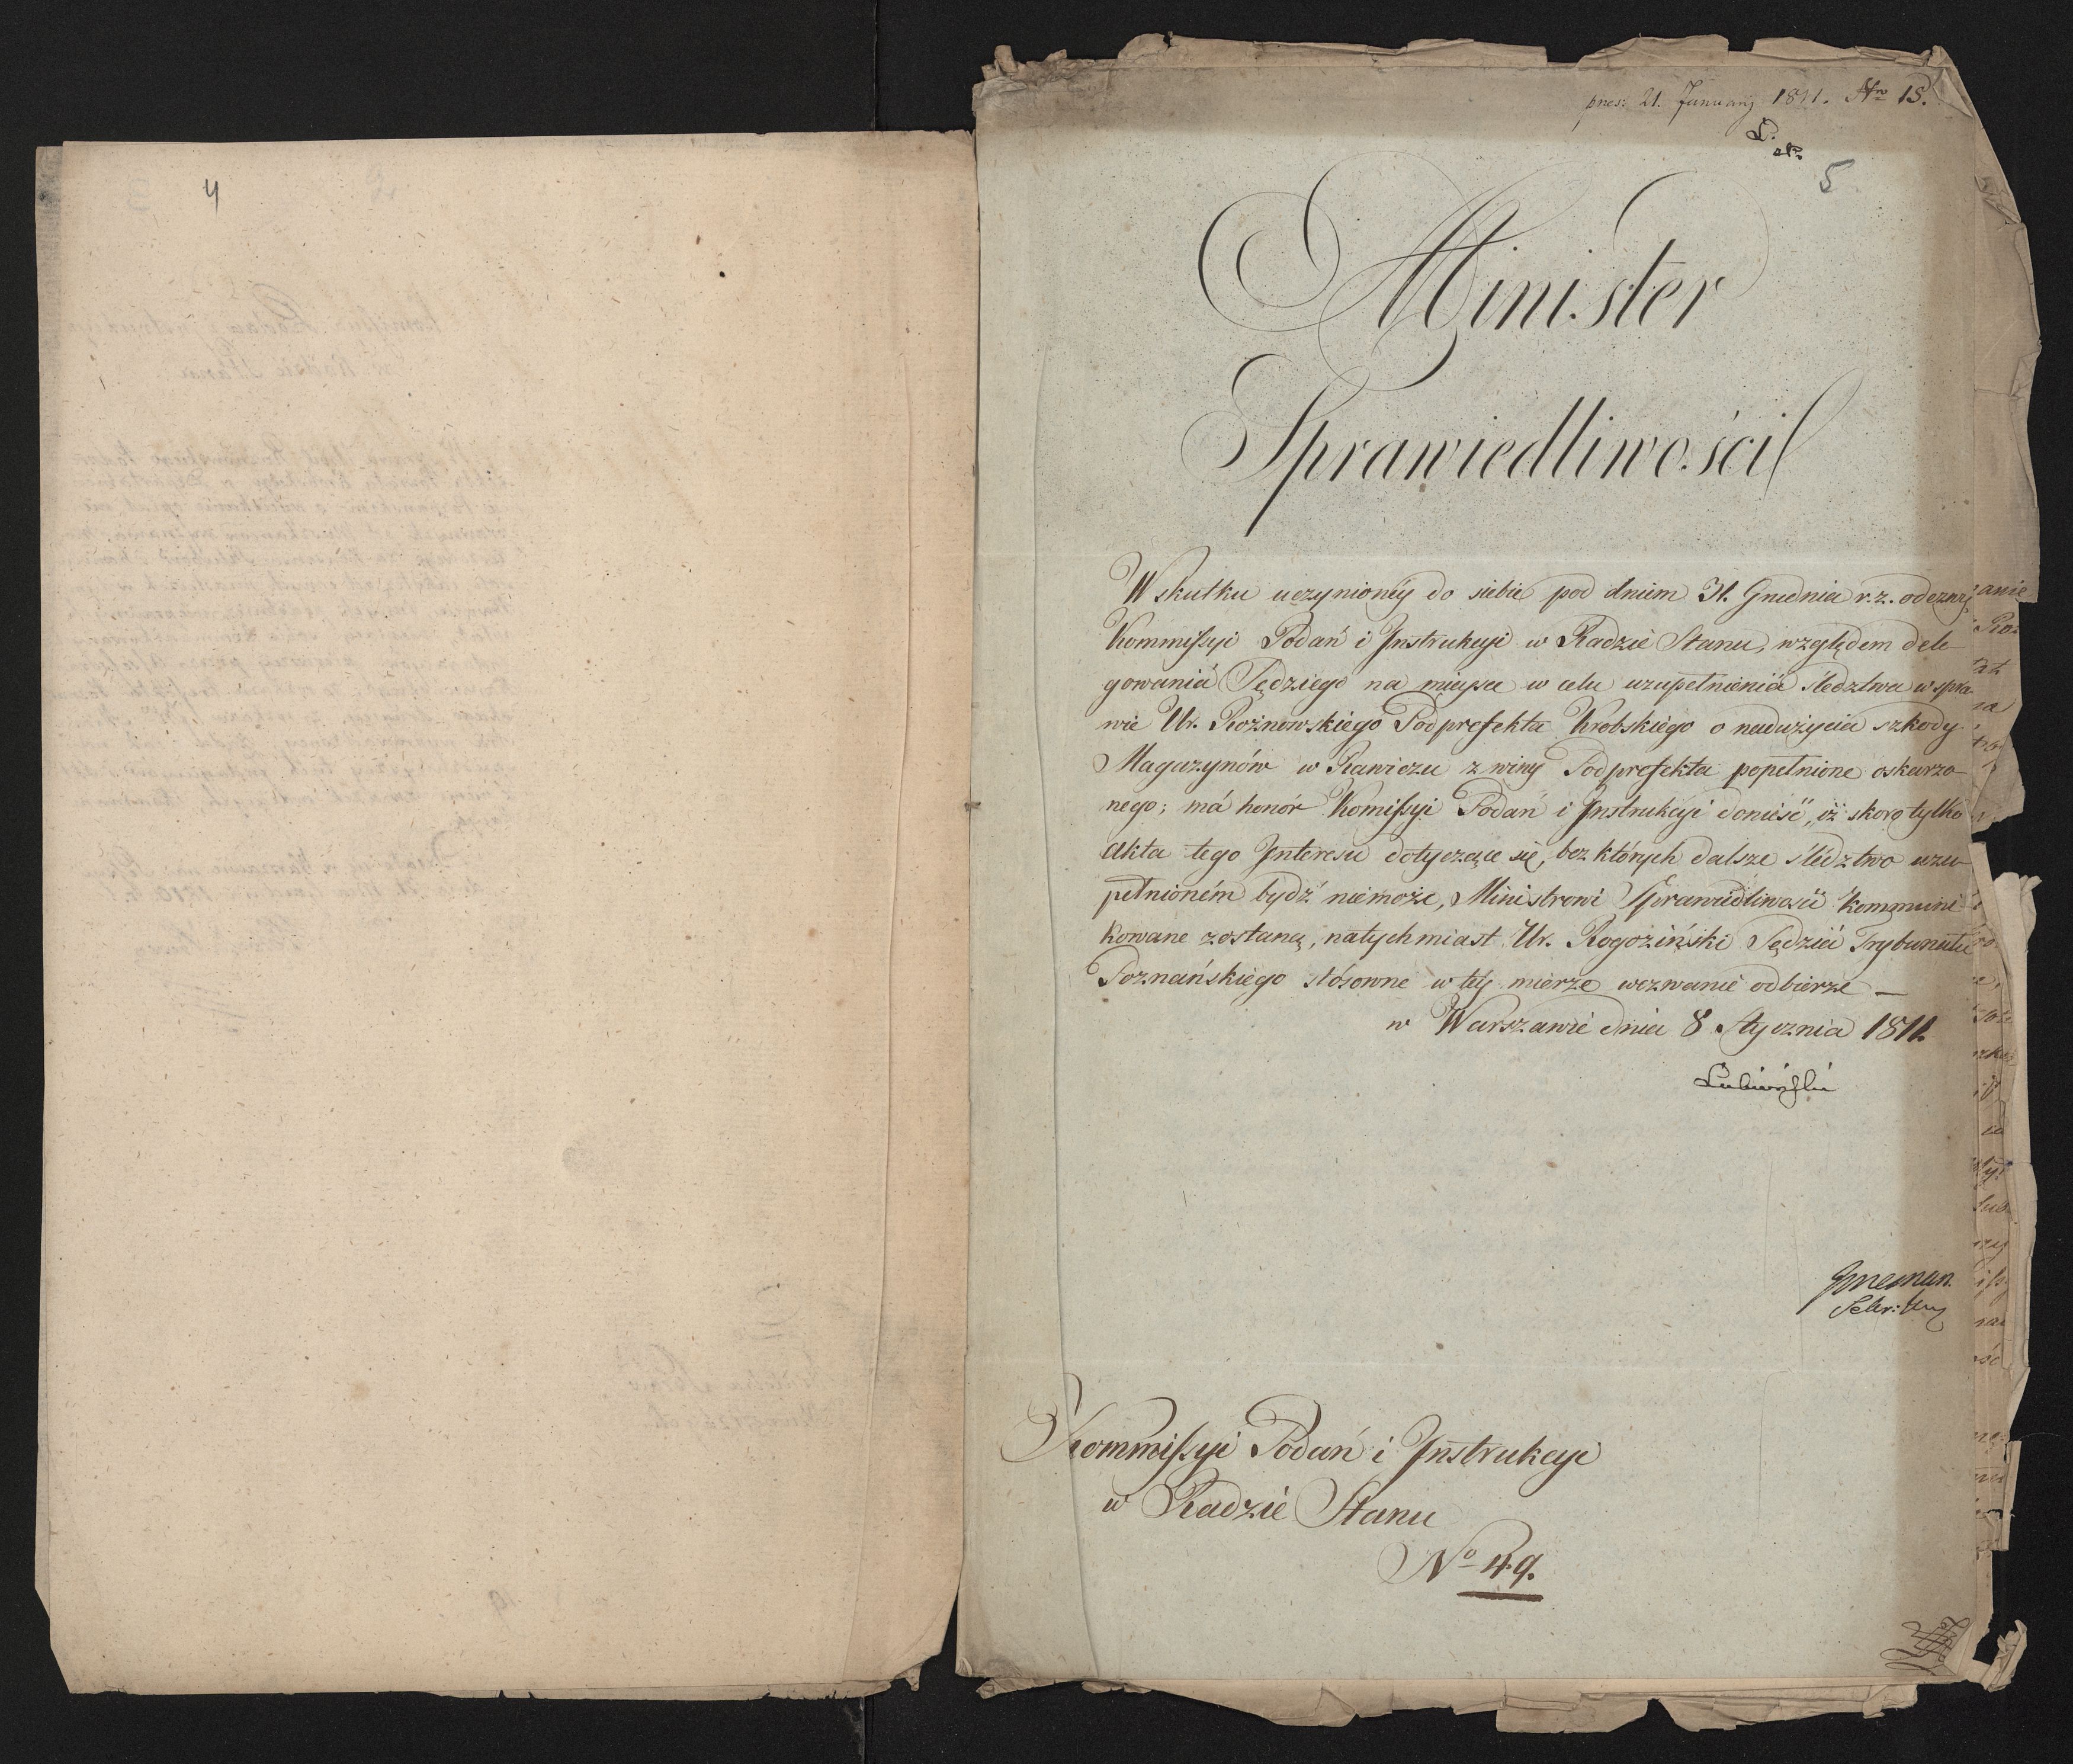 4
pres: 21. January 1811. Nro 15.
5
Minister
Sprawiedliwości
W skutku uczynionéy do siebie pod dniem 31. Grudnia r. z. odezwy
Kommissyi Podań i Instrukcyi w Radzie Stanu, względem dele-
gowania Sędziego na mieysce w celu uzupełnienia śledztwa w spra-
wie Ur. Rożnowskiego Podprefekta Krobskiego o nadużycia szkody
Magazynów w Rawiczu z winy Podprefekta popełnione oskarzo-
nego; má honór Komissyi Podań i Instrukcyi donieść, iż skoro tylko
Akta tego Interesu dotyczące się, bez których dalsze śledztwo uzu-
pełnioném bydź niemoże, Ministrowi Sprawiedliwości kommuni-
kowane zostaną, natychmiast Ur. Rogoziński Sędzia Trybunału
Poznańskiego stósowne w téy mierze wezwanie odbierze —
w Warszawie dnia 8 Stycznia 1811.
Lubieński
Sekr:
Kommissyi Podań i Instrukcyi
w Radzie Stanu
No 49.